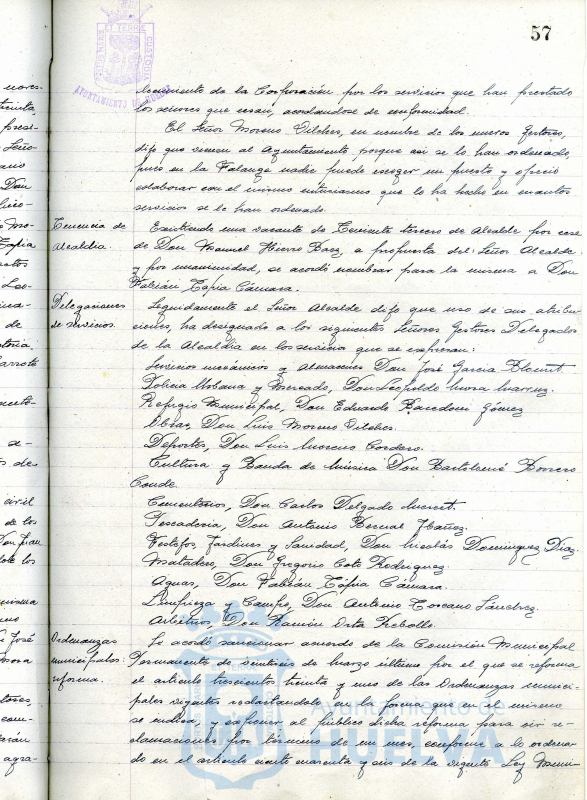 57
AYUNTAMIENTO DE HUELVA
de la Corporación por los servicios que han prestado
los señores que cesan, acordándose de conformidad.
El Señor Moreno Vilches, en nombre de los nuevos Gestores,
dijo que vienen al Ayuntamiento, porque así se lo han ordenado,
pues en la Falange nadie puede escoger un puesto y ofreció
colaborar con el mismo entusiasmo que lo ha hecho en cuantos
servicios se le han ordenado.
Tenencia de
Alcaldía.
Existiendo una vacante de Teniente tercero de Alcalde por cese
de Don Manuel Hierro Baez, a propuesta del Señor Alcalde
y por unanimidad, se acordó nombrar para la misma a Don
Fabián Tapia Cámara.
Delegaciones
de servicios.
Seguidamente el Señor Alcalde dijo que uso de sus atribu-
ciones, ha designado a los siguientes Señores Gestores Delegados
de la Alcaldía en los servicios que se expresan:
Servicios mecánicos y Almacenes Don José García
Policía Urbana y Mercado, Don Leopoldo
Refugio Municipal, Don Eduardo Gómez
Obras, Don Luis Moreno Vilches.
Deportes, Don Luis Moreno Cordero.
Cultura y Banda de Música Don Bartolomé Borrero
Conde.
Cementerios, Don Carlos Delgado
Pescadería, Don Antonio Bernal Ibañez.
Festejos, Jardines y Sanidad, Don Nicolás Dominguez Diaz.
Matadero, Don Gregorio Coto Rodriguez.
Aguas, Don Fabián Tapia Cámara.
Limpieza y Campo, Don Antonio Toscano Sánchez.
Arbitrios, Don Ramón Orta Rebollo.
Ordenanzas
municipales:
reforma.
Se acordó sancionar acuerdo de la Comisión Municipal
Permanente de veintiseis de marzo último por el que se reforma
el artículo trescientos treinta y uno de las Ordenanzas munici-
pales vigentes redactándolo en la forma que en el mismo
se indica, y exponer al público dicha reforma para oir re-
clamaciones por término de un mes, conforme a lo ordena-
do en el artículo ciento cuarenta y seis de la vigente Ley Muni-
Ayuntamiento de
HUELVA